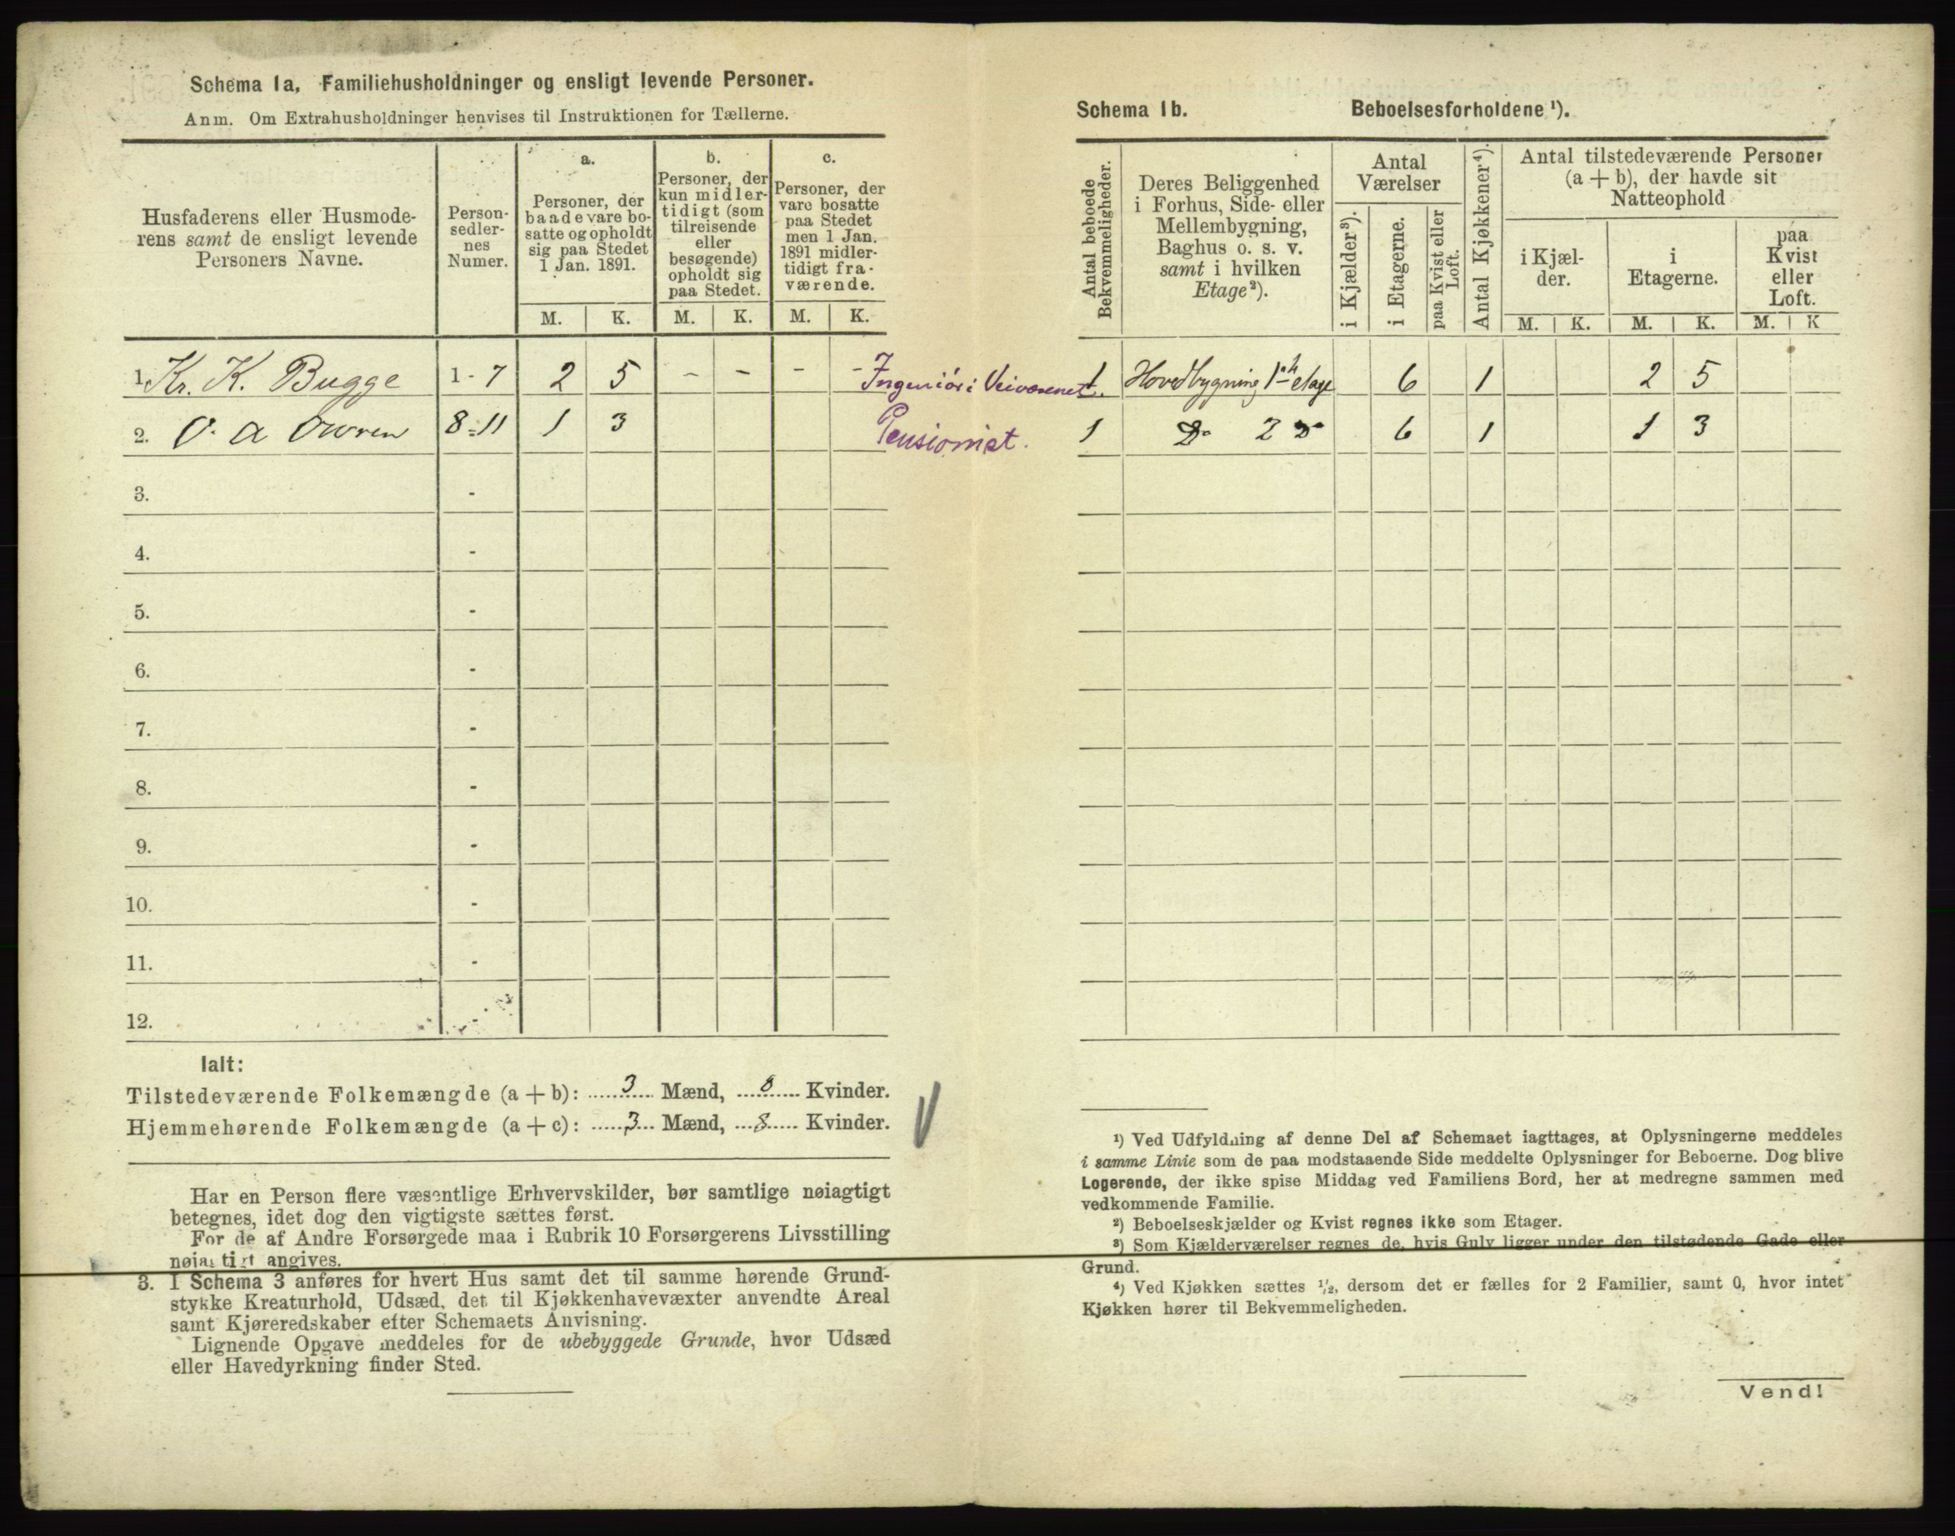 Schema 1a, Familiehusholdninger og ensligt levende Personer.
Anm. Om Extrahusholdninger henvises til Instruktionen for Tællerne.
Husfaderens eller Husmode-
rens samt de ensligt levende
Personers Navne.
Person-
sedler-
nes
Numer.
a.
Personer, der
baade vare bo-
satte og opholdt
sig paa Stedet
1 Jan. 1891.
b.
Personer, der
kun midler-
tidigt (som
tilreisende
eller
besøgende)
opholdt sig
paa Stedet.
c.
Personer, der
vare bosatte
paa Stedet
men 1 Jan.
1891 midler-
tidigt fra-
værende.
M. K. M. K. M. K.
1. Kr. K. Bugge 1 - 7 2 5 - - - - Ingeniør i Veivæsenet.
2. O. A Owren 8 - 11 1 3 Pensionist.
3. -
4. -
5. -
6. -
7. -
8. -
9. -
10. -
11. -
12.
Ialt:
Tilstedeværende Folkemængde (a + b): 3 Mænd, 8 Kvinder.
Hjemmehørende Folkemængde (a + c): 3 Mænd, 8 Kvinder.
Har en Person flere væsentlige Erhvervskilder, bør samtlige nøiagtigt
betegnes, idet dog den vigtigste sættes først.
For de af Andre Forsørgede maa i Rubrik 10 Forsørgerens Livsstilling
nøiagtigt angives.
3. I Schema 3 anføres for hvert Hus samt det til samme hørende Grund-
stykke Kreaturhold, Udsæd, det til Kjøkkenhavevæxter anvendte Areal
samt Kjøreredskaber efter Schemaets Anvisning.
Lignende Opgave meddeles for de ubebyggede Grunde, hvor Udsæd
eller Havedyrkning finder Sted.
Schema 1b. Beboelsesforholdene ¹).
Antal beboede
Bekvemmeligheder.
Deres Beliggenhed
i Forhus, Side- eller
Mellembygning,
Baghus o. s. v.
samt i hvilken
Etage²).
Antal
Værelser
i Kjælder³).
i Etagerne.
paa Kvist eller
Loft.
Antal Kjøkkener⁴).
Antal tilstedeværende Personer
(a + b), der havde sit
Natteophold
i Kjæl-
der.
i
Etagerne.
paa
Kvist
eller
Loft.
M. K. M. K. M. K
1 Hovedbygning 1ste etage 6 1 2 5
1 Do 2 Do 6 1 1 3
¹) Ved Udfyldning af denne Del af Schemaet iagttages, at Oplysningerne meddeles
i samme Linie som de paa modstaaende Side meddelte Oplysninger for Beboerne. Dog blive
Logerende, der ikke spise Middag ved Familiens Bord, her at medregne sammen med
vedkommende Familie.
²) Beboelseskjælder og Kvist regnes ikke som Etager.
³) Som Kjælderværelser regnes de, hvis Gulv ligger under den tilstødende Gade eller
Grund.
⁴) Ved Kjøkken sættes ½, dersom det er fælles for 2 Familier, samt 0, hvor intet
Kjøkken hører til Bekvemmeligheden.
Vend!